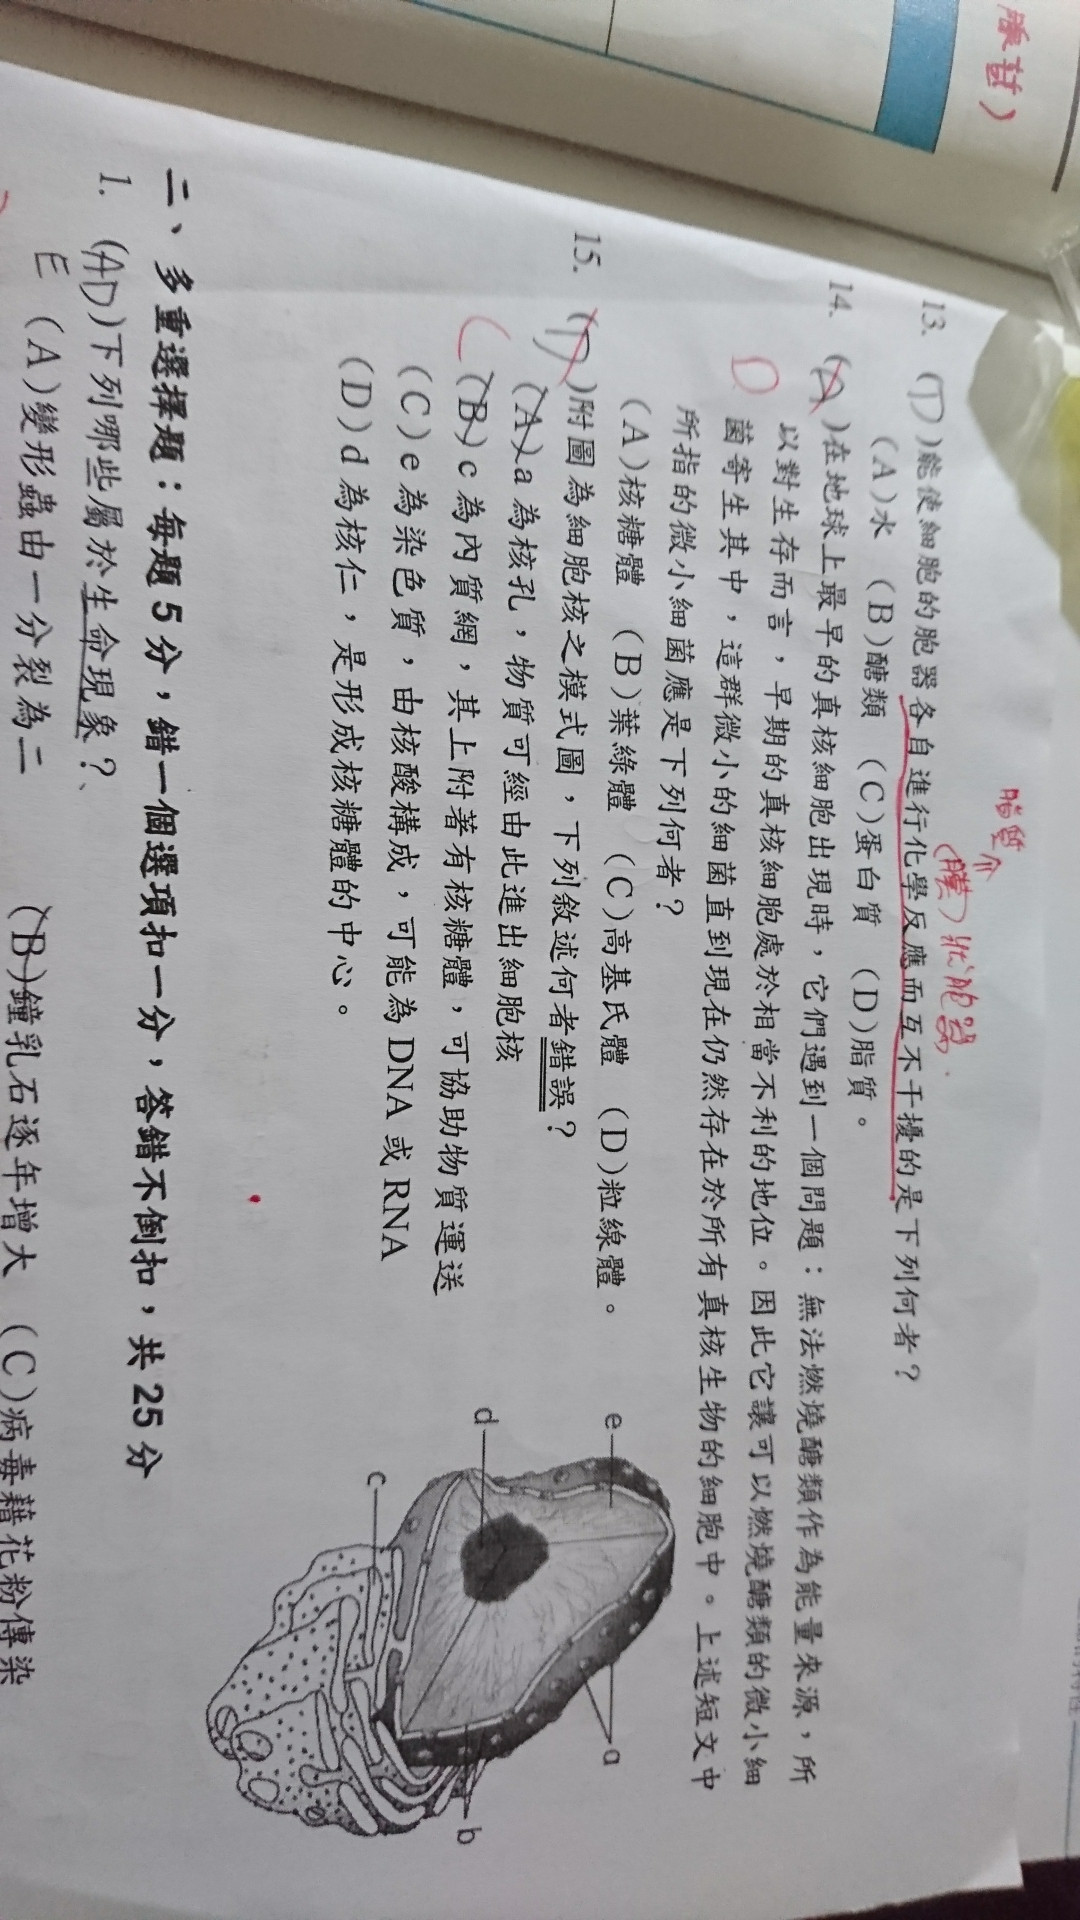 13. (D)能使細胞的胞器各自進行化學反應而互不干擾的是下列何者？
(A)水 (B)醣類 (C)蛋白質 (D)脂質。
脂質
(膜)狀胞器
14. (A)在地球上最早的真核細胞出現時，它們遇到一個問題：無法燃燒醣類作為能量來源，所
D 以對生存而言，早期的真核細胞處於相當不利的地位。因此它讓可以燃燒醣類的微小細
菌寄生其中，這群微小的細菌直到現在仍然存在於所有真核生物的細胞中。上述短文中
所指的微小細菌應是下列何者？
(A)核糖體 (B)葉綠體 (C)高基氏體 (D)粒線體。
15. (D)附圖為細胞核之模式圖，下列敘述何者錯誤？
C (A)a 為核孔，物質可經由此進出細胞核
(B)c 為內質網，其上附著有核糖體，可協助物質運送
(C)e 為染色質，由核酸構成，可能為 DNA 或 RNA
(D)d 為核仁，是形成核糖體的中心。
e
d
c
a
b
二、多重選擇題：每題 5 分，錯一個選項扣一分，答錯不倒扣，共 25 分
1. (AD)下列哪些屬於生命現象？
E (A)變形蟲由一分裂為二 (B)鐘乳石逐年增大 (C)病毒藉花粉傳染